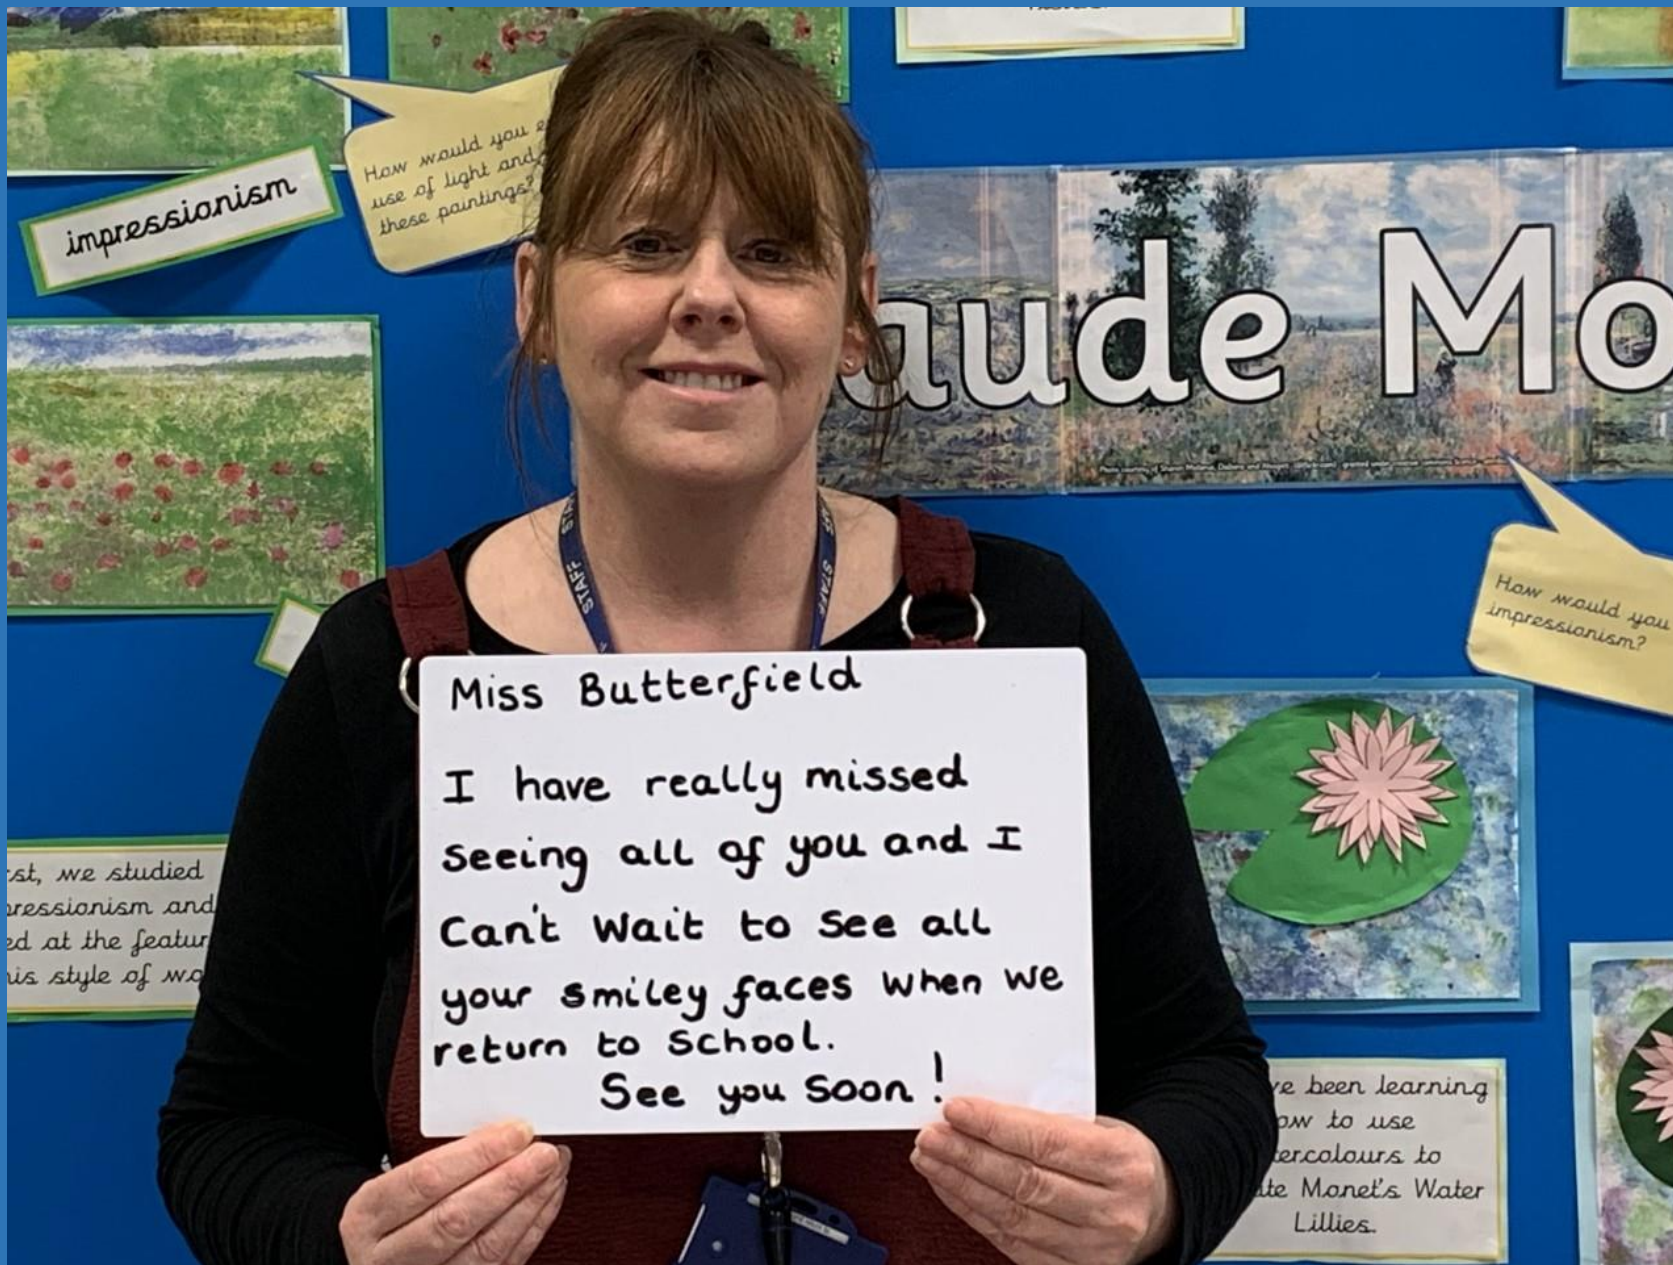 impressionism
How would you
use of light and
these paintings?
aude Mo
STAFF
STAFF
How would you
impressionism?
Miss Butterfield
I have really missed
seeing all of you and I
Can't wait to see all
your smiley faces when we
return to school.
See you soon!
st, we studied
ressionism and
ed at the featur
is style of wo
ve been learning
ow to use
ercolours to
ate Monet's Water
Lillies.